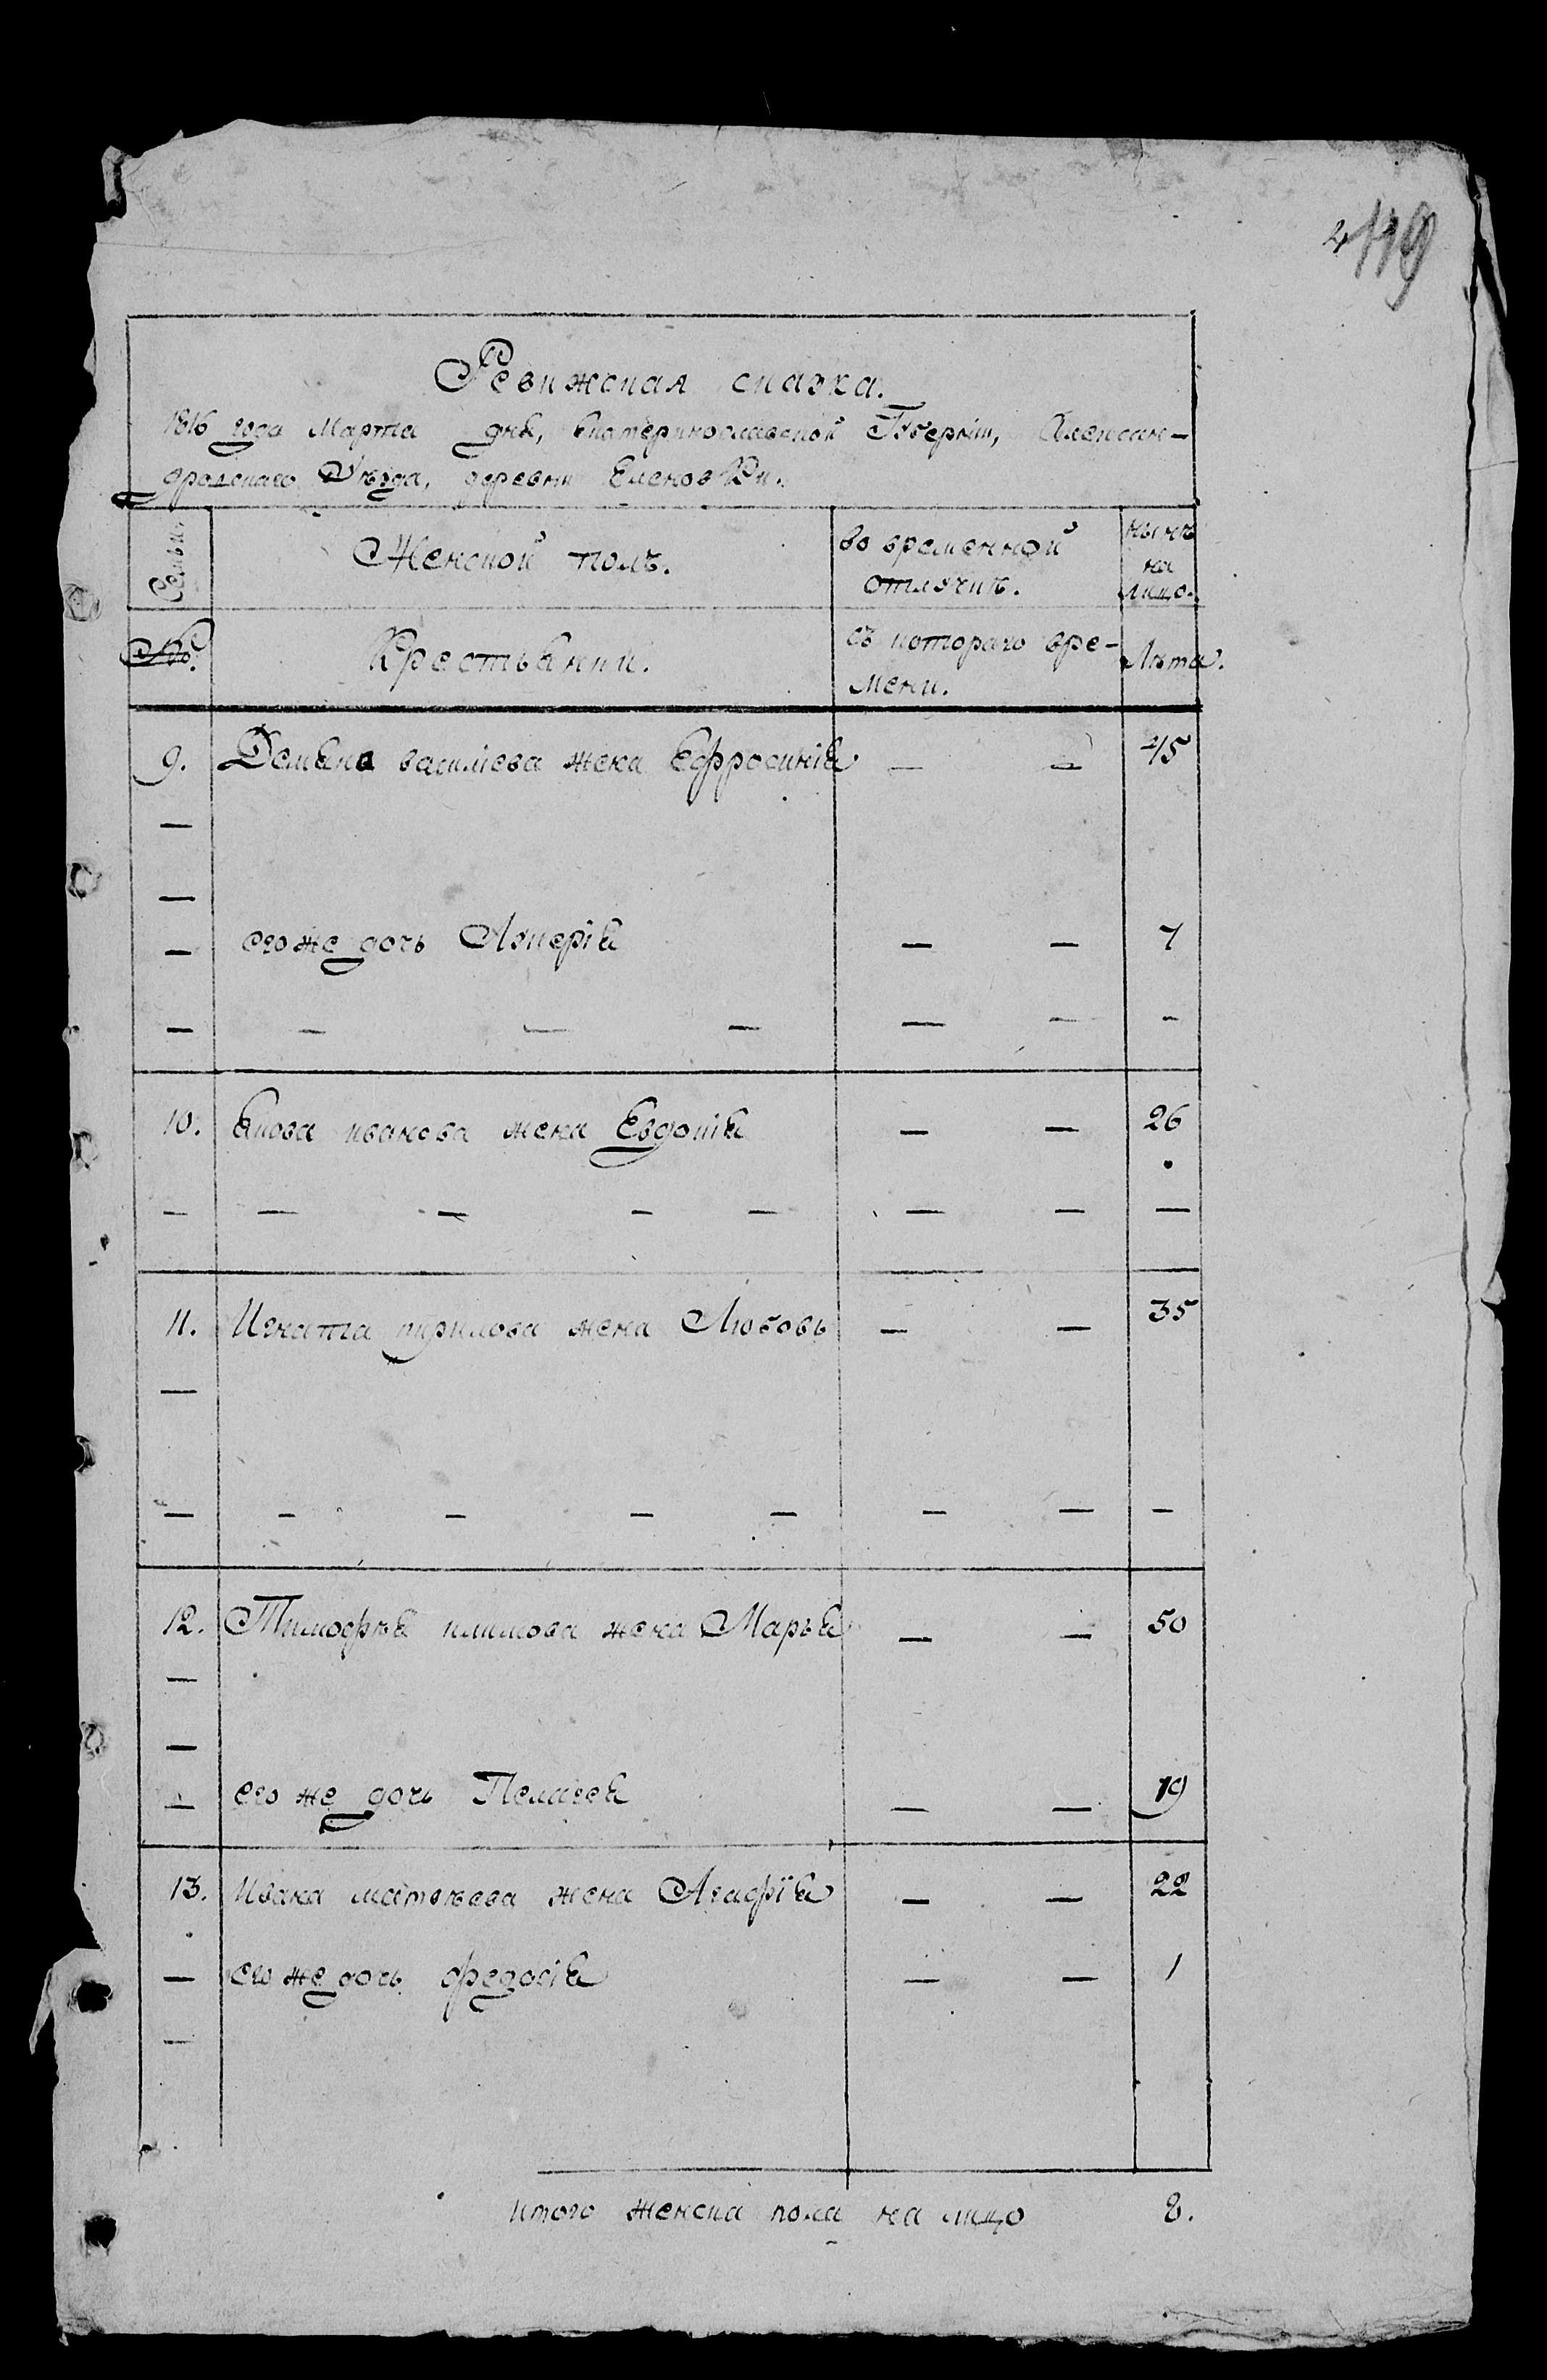 4 119
Ревижская сказка.
1816 года Марта дня, Екатеринославской Губерніи, Алексан-
дровскаго Уѣзда, деревни Еленовки.
Семьи
Женской полъ.
во временной
отлучкѣ.
нынѣ
на
лицо.
№.
Крестьянки.
съ котораго вре-
мени.
Лѣта.
9. Демьяна васильева жена Ефросинія — — 45
—
—
— его же дочь Лукерія — — 7
— — — — — — -
10. Якова иванова жена Евдокія — — 26
— — — — — — — —
11. Игната кирилова жена Любовь — — 35
—
— — — — — — — —
12. Тимофѣя климова жена Марья — — 50
—
—
— его же дочь Пелагея — — 19
13. Ивана матвѣева жена Агафія — — 22
— его же дочь федосія — — 1
—
итого женска пола на лицо 8.